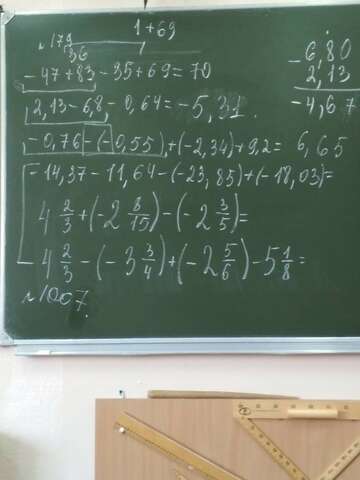 № 179 1+69
36
-47+83-35+69=70
2,13-6,8-0,64=-5,31.
-0,76-(-0,55)+(-2,34)+9,2= 6,65
-14,37-11,64-(-23,85)+(-18,03)=
4 2/3+(-2 8/15)-(-2 3/5)=
4 2/3-(-3 3/4)+(-2 5/6)-5 1/8=
№1007.
-6,80
2,13
-4,67